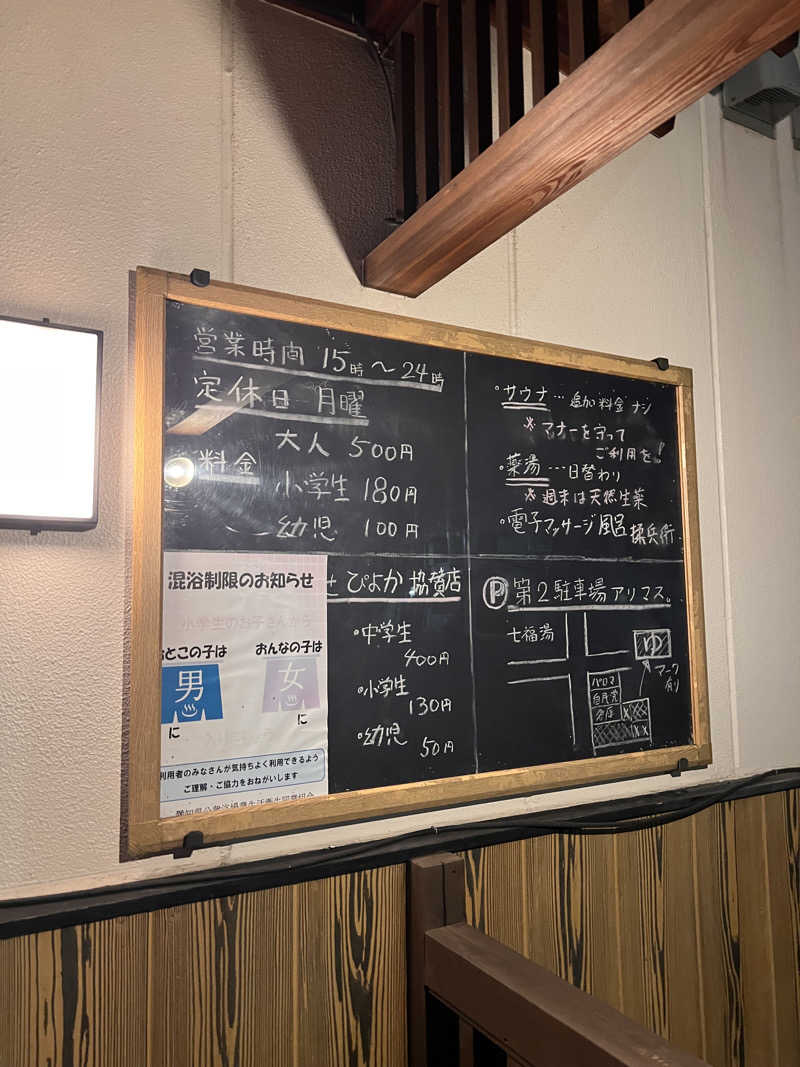 営業時間 15時～24時
定休日 月曜
料金
大人 500円
小学生 180円
幼児 100円
・サウナ…追加料金ナシ
※マナーを守って
ご利用を!
・薬湯…日替わり
※週末は天然生薬
・電子マッサージ風呂揉兵衛
混浴制限のお知らせ
小学生のお子さんから
おとこの子は
男
に
おんなの子は
女
に
利用者のみなさんが気持ちよく利用できるよう
ご理解・ご協力をおねがいします
せ ぴよか 協賛店
・中学生
400円
・小学生
130円
・幼児
50円
Ⓟ第2駐車場アリマス。
七福湯
ゆ
マーク
有り
パロマ
自民党